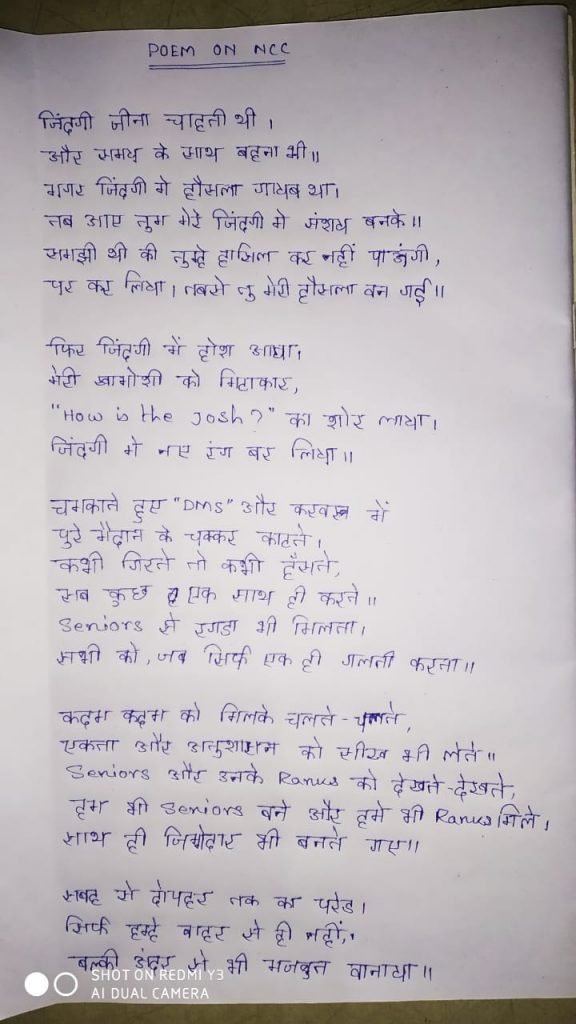 POEM ON NCC
जिंदगी जीना चाहती थी ।
और समय के साथ बहना भी॥
मगर जिंदगी मे हौसला गायब था।
तब आए तुम मेरे जिंदगी मे संशय बनके॥
समझी थी की तुम्हे हासिल कर नहीं पाऊंगी,
पर कर लिया। तबसे तु मेरी हौसला बन गई॥
फिर जिंदगी में होश आया।
मेरी खामोशी को मिटाकार,
"How is the Josh?" का शोर लाया।
जिंदगी मे नए रंग बर लिया॥
चमकाते हुए "DMS" और में
पुरे मैदान के चक्कर काटते।
कभी गिरते तो कभी हँसते,
सब कुछ एक साथ ही करते॥
Seniors से रगडा भी मिलता।
सभी को, जब सिर्फ एक ही गलती करता॥
कदम कदम को मिलके चलते-चलते,
एकता और अनुशासन को सीख भी लेते॥
Seniors और उनके Ranks को देखते-देखते,
हम भी Seniors बने और हमे भी Ranks मिले।
साथ ही जिम्मेदार भी बनते गए॥
सुबह से दोपहर तक का परेड।
सिर्फ हम्हे बाहर से ही नहीं,
बल्की अंदर से भी मजबुत बानाया॥
SHOT ON REDMI Y3
AI DUAL CAMERA